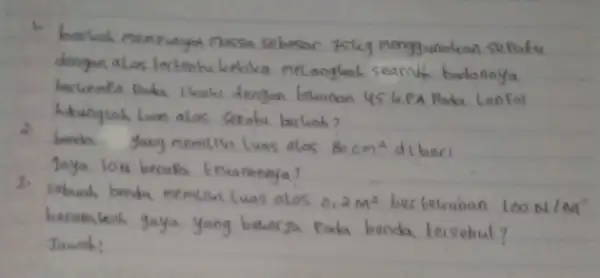 1. barkah mempunyai massa sebesar 75kg menggunakan sepatu
dengan alas tertentu ketika melangkah seluruh badannya
bertumpu pada 1 kaki dengan tekanan 45 kPA Pada Lantai
hitunglah Luas alas sepatu barkah?
2. benda yang memiliki Luas alas 80 cm² diberi
gaya 10N berapa tekanannya?
3. sebuah benda memiliki Luas alas 0,2 M² bertekanan 100 N/M²
berapakah gaya yang bekerja Pada benda tersebut?
Jawab: